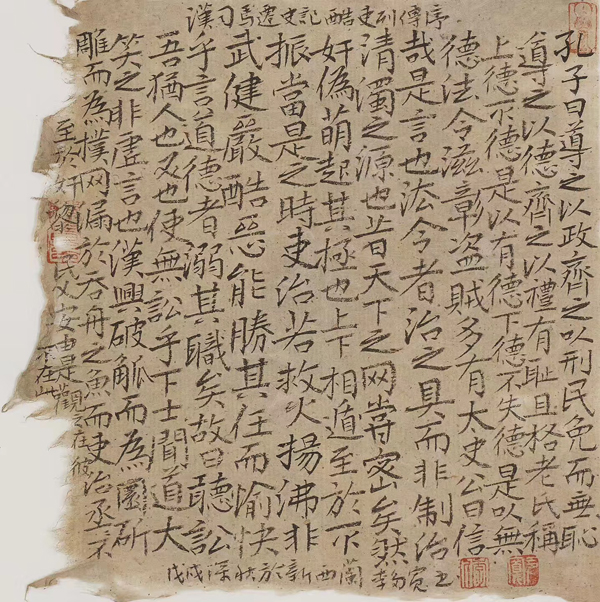 漢司馬遷史記酷吏列傳序
孔子曰導之以政齊之以刑民免而無恥
導之以德齊之以禮有恥且格老氏稱
上德不德是以有德下德不失德是以無
德法令滋彰盜賊多有太史公曰信
哉是言也法令者治之具而非制治
清濁之源也昔天下之网嘗密矣然
奸偽萌起其極也上下相遁至於不
振當是之時吏治若救火揚沸非
武健嚴酷惡能勝其任而愉快
乎言道德者溺其職矣故曰聽訟
吾猶人也必也使無訟乎下士聞道大
笑之非虛言也漢興破觚而為圜斫
雕而為樸网漏於吞舟之魚而吏治烝不
至於奸黎民艾安由是觀之在彼
不在此
戊戌深秋於新西蘭